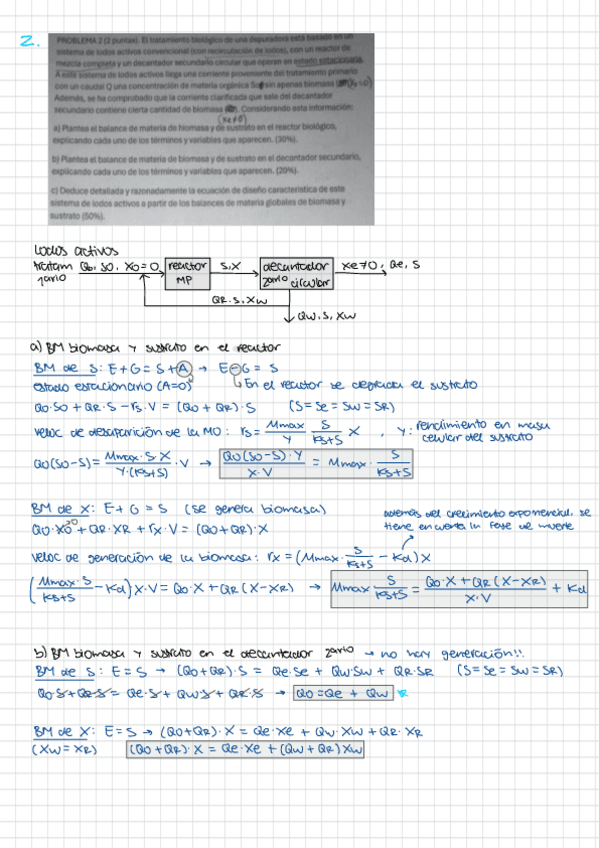 2.
PROBLEMA 2 (2 puntos). El tratamiento biológico de una depuradora está basado en un
sistema de lodos activos convencional (con recirculación de lodos), con un reactor de
mezcla completa y un decantador secundario circular que operan en estado estacionario.
A este sistema de lodos activos llega una corriente proveniente del tratamiento primario
con un caudal Q una concentración de materia orgánica So sin apenas biomasa (X0=0)
Además, se ha comprobado que la corriente clarificada que sale del decantador
secundario contiene cierta cantidad de biomasa. Considerando esta información:
(Xe≠0)
a) Plantea el balance de materia de biomasa y de sustrato en el reactor biológico,
explicando cada uno de los términos y variables que aparecen. (30%).
b) Plantea el balance de materia de biomasa y de sustrato en el decantador secundario,
explicando cada uno de los términos y variables que aparecen. (20%).
c) Deduce detallada y razonadamente la ecuación de diseño característica de este
sistema de lodos activos a partir de los balances de materia globales de biomasa y
sustrato (50%).
Lodos activos
tratam 1ario Q0, S0, X0=0 reactor MP S,X decantador 2ario circular Xe≠0, Qe, S
QR, S, XW
QW, S, XW
a) BM biomasa y sustrato en el reactor
BM de S: E+G=S+A → E-G=S
estado estacionario (A=0) En el reactor se degrada el sustrato
Q0·S0 + QR·S - rs·V = (Q0+QR)·S (S=Se=SW=SR)
veloc de desaparición de la MO: rs = Mmax/Y S/(Ks+S) X , Y: rendimiento en masa celular del sustrato
Q0(S0-S) = Mmax·S·X/(Y·(Ks+S)) ·V → Q0(S0-S)·Y/(X·V) = Mmax· S/(Ks+S)
BM de X: E+G=S (se genera biomasa)
además del crecimiento exponencial, se tiene en cuenta la fase de muerte
Q0·X0 =0 + QR·XR + rx·V = (Q0+QR)·X
veloc de generación de la biomasa: rx = (Mmax· S/(Ks+S) - Kd)X
(Mmax·S/(Ks+S) - Kd) X·V = Q0·X + QR(X-XR) → Mmax S/(Ks+S) = (Q0·X + QR(X-XR))/(X·V) + Kd
b) BM biomasa y sustrato en el decantador 2ario → no hay generación!!
BM de S: E=S → (Q0+QR)·S = Qe·Se + QW·SW + QR·SR (S=Se=SW=SR)
Q0·S + QR·S = Qe·S + QW·S + QR·S → Q0 = Qe + QW
BM de X: E=S → (Q0+QR)·X = Qe·Xe + QW·XW + QR·XR
(XW=XR) (Q0+QR)·X = Qe·Xe + (QW+QR)XW